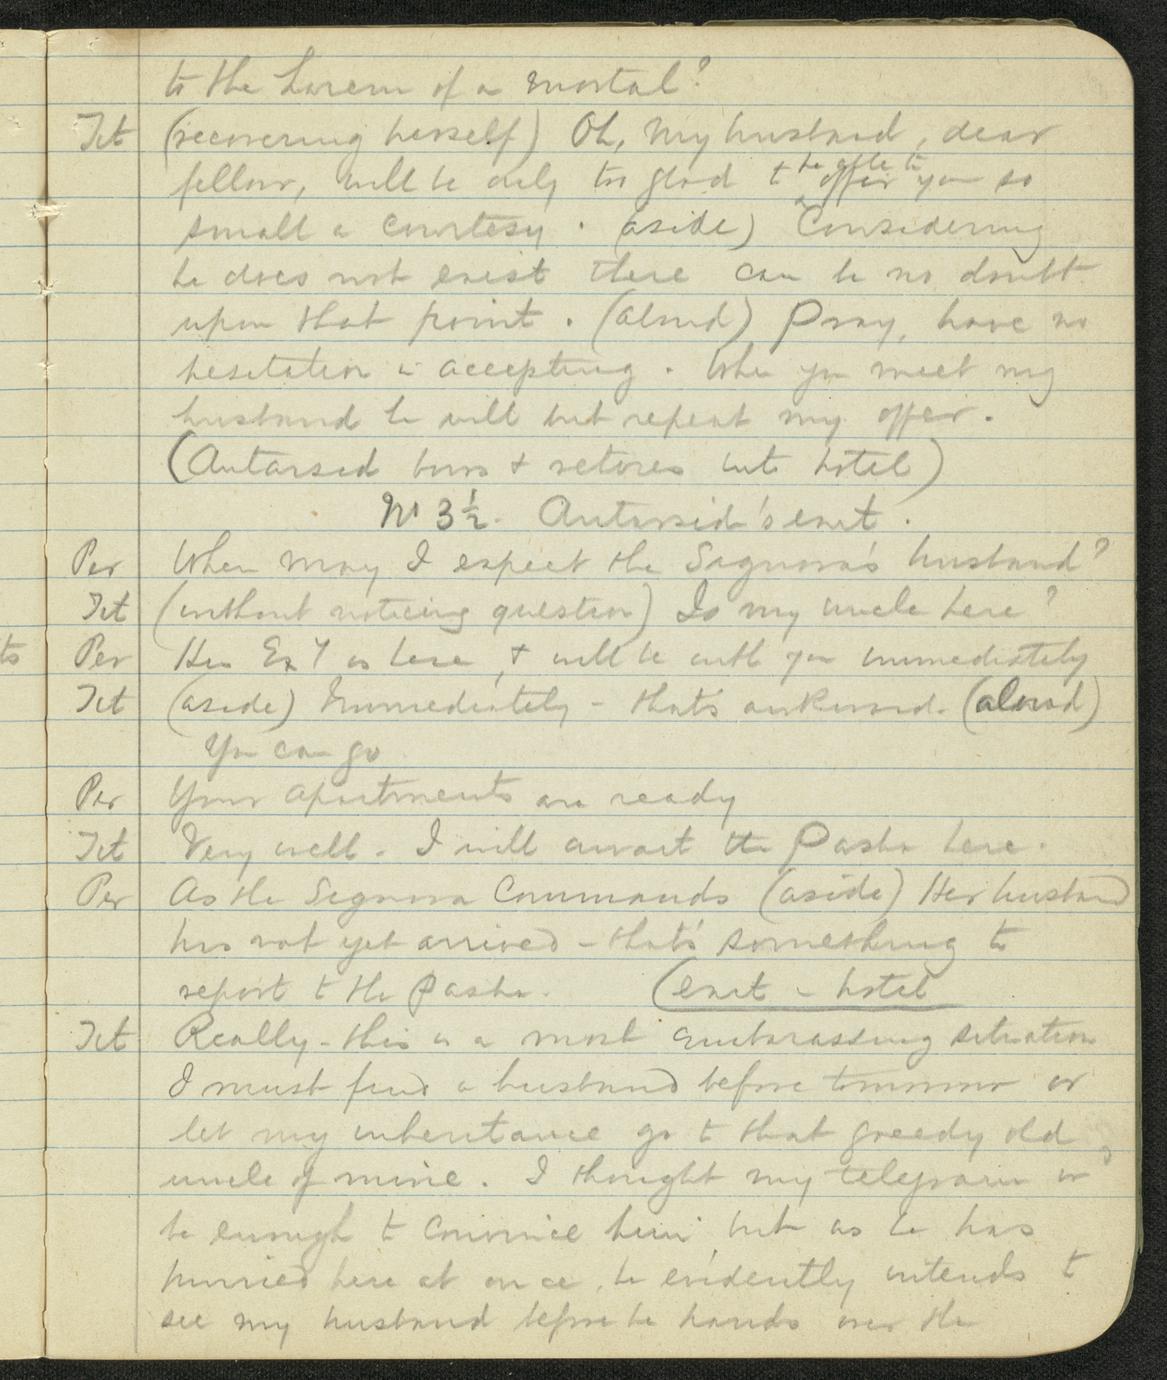 to the harem of a mortal?
Tet (recovering herself) Oh, my husband, dear
fellow, will be only too glad to be able to offer you so
small a courtesy. (aside) Considering
he does not exist there can be no doubt
upon that point. (aloud) Pray, have no
hesitation in accepting. When you meet my
husband he will but repeat my offer.
(Antarsid bows & retires into hotel)
No 3½. Antarsid's exit.
Per When may I expect the Signora's husband?
Tet (without noticing question) Is my uncle here?
Per His Ex'y is here, & will be with you immediately
Tet (aside) Immediately - that's awkward. (aloud)
You can go
Per Your apartments are ready
Tet Very well. I will await the Pasha here.
Per As the Signora Commands (aside) Her husband
has not yet arrived - that's something to
report to the Pasha. (exit in hotel
Tet Really - this is a most embarassing situation
I must find a husband before tomorrow or
let my inheritance go to that greedy old
uncle of mine. I thought my telegram wd
be enough to convince him, but as he has
hurried here at once, he evidently intends to
see my husband before he hands over the
ts